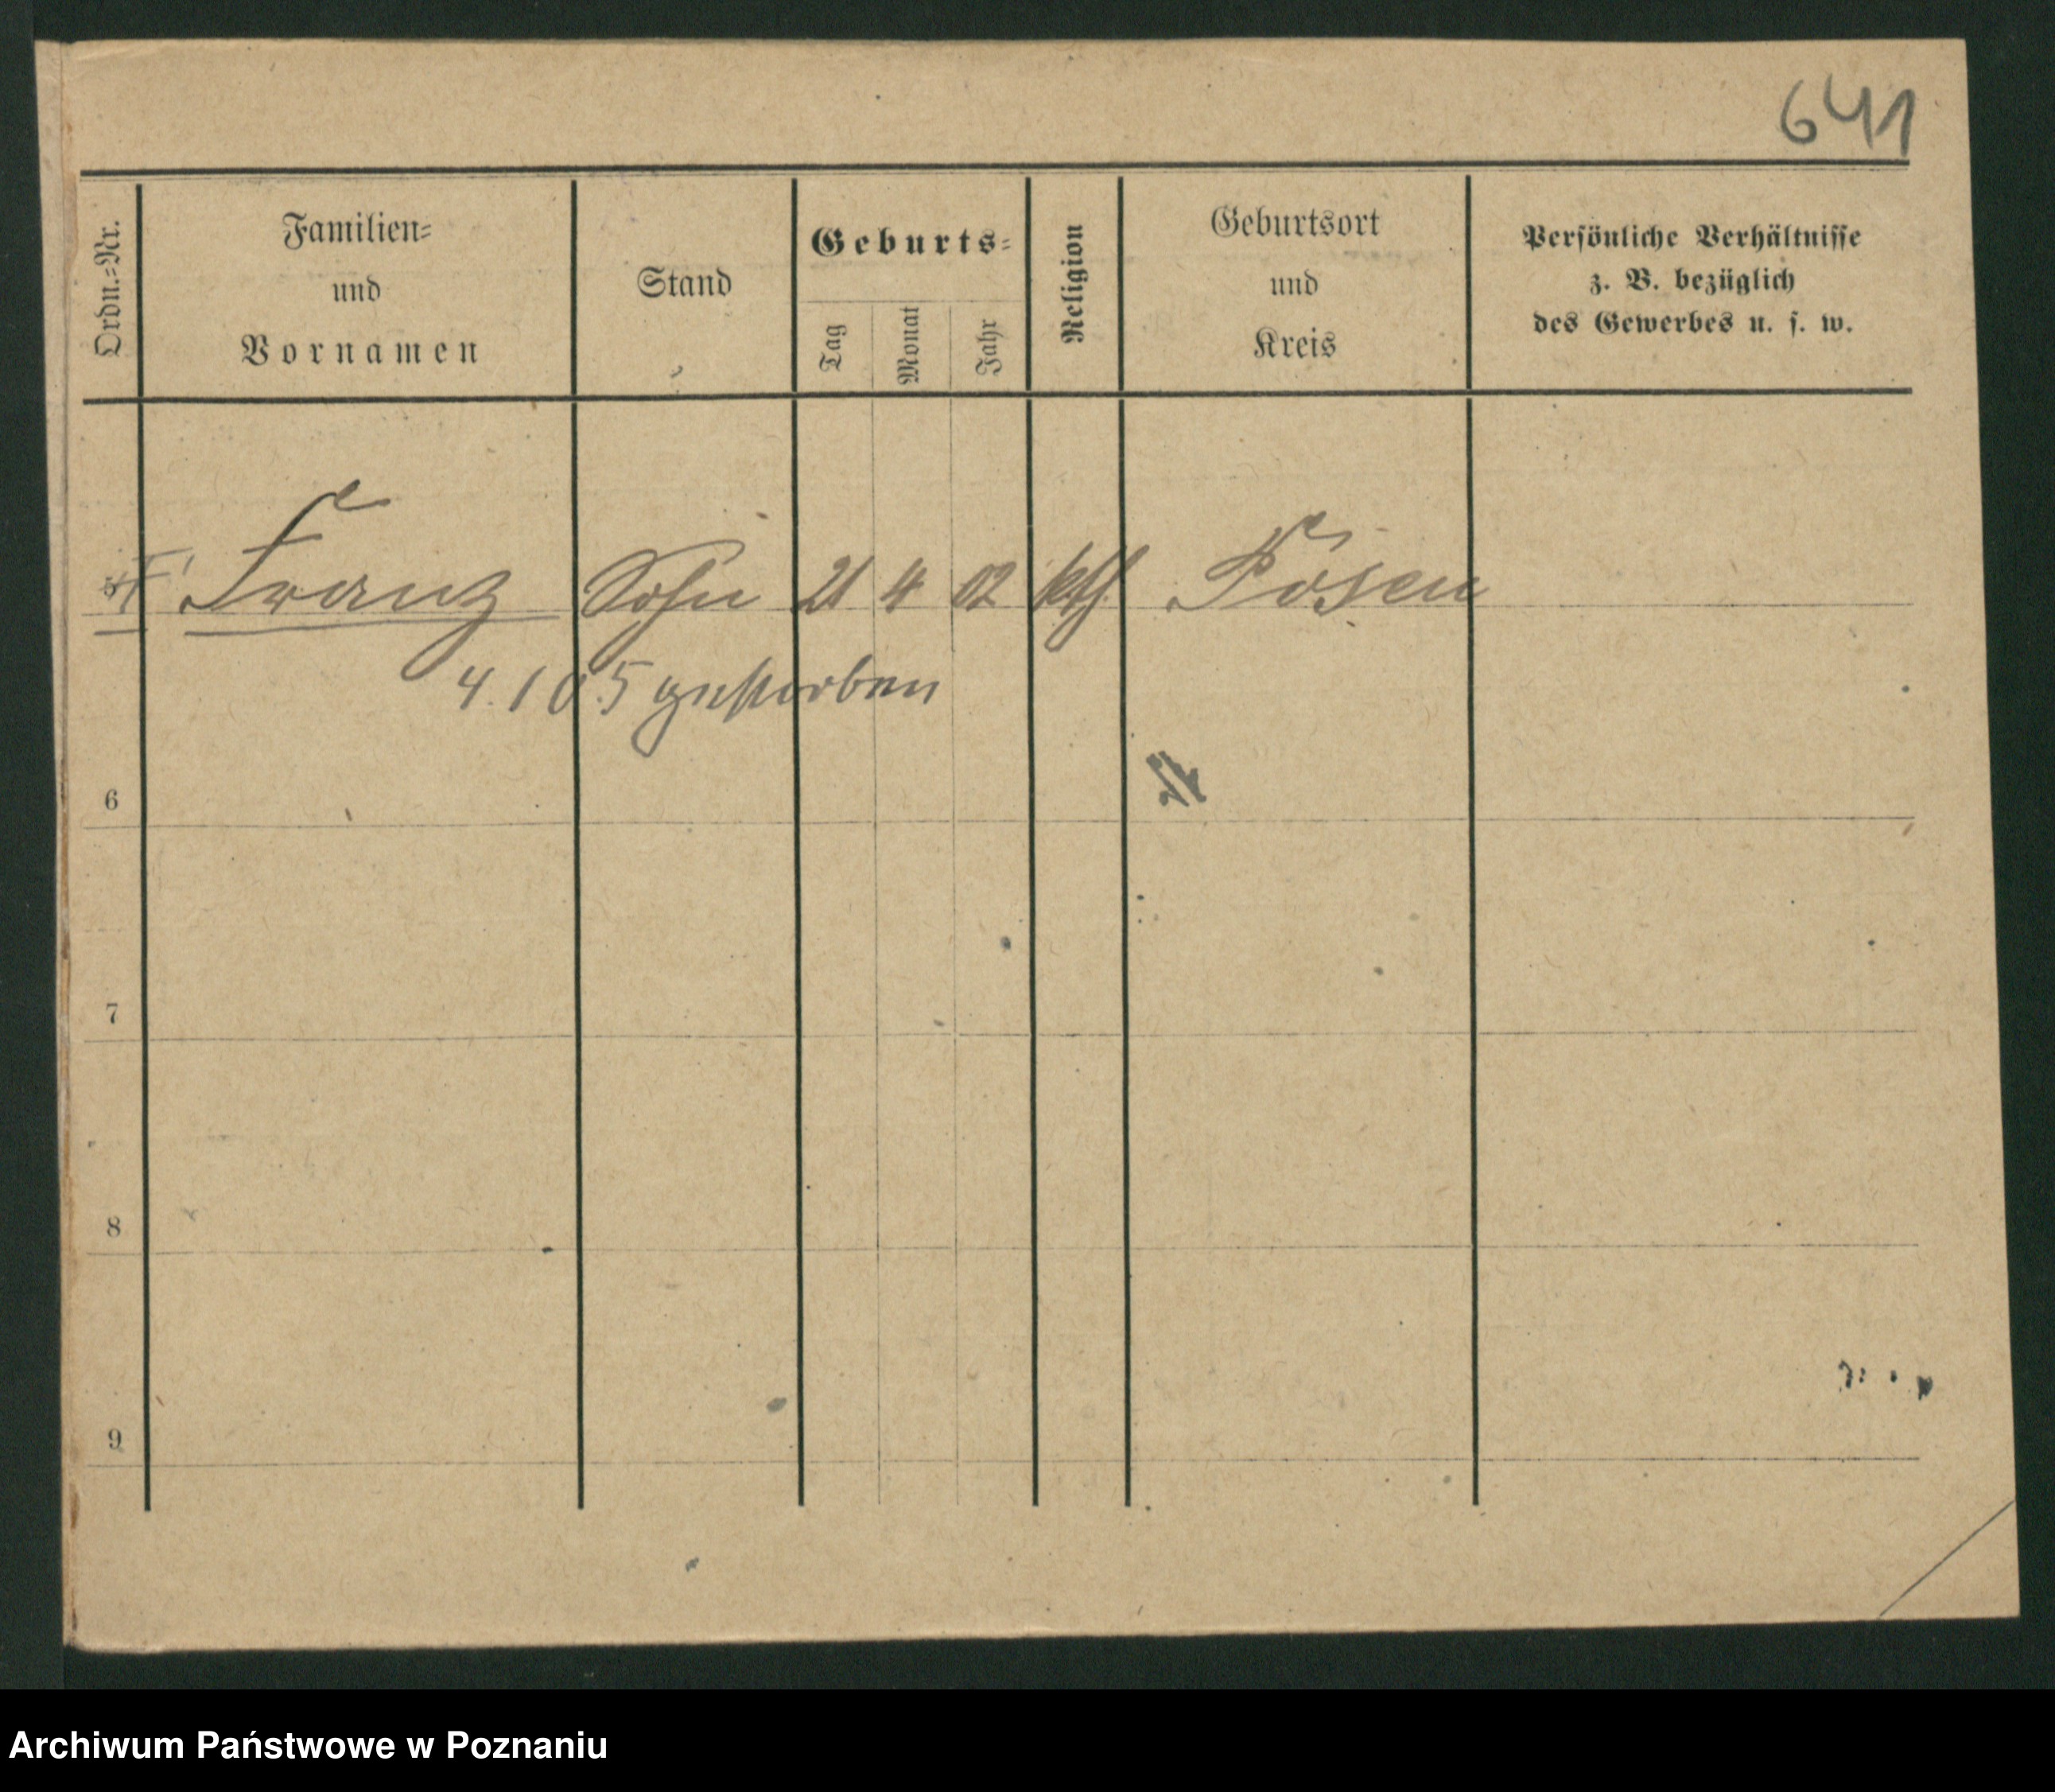 641
Ordn.=Nr.
Familien=
und
Vornamen
Stand
Geburts=
Tag
Monat
Jahr
Religion
Geburtsort
und
Kreis
Persönliche Verhältnisse
z. B. bezüglich
des Gewerbes u. s. w.
Franz Sohn 21 4 02 kth. Posen
4. 1 05 gestorben
6
7
8
9
Archiwum Państwowe w Poznaniu